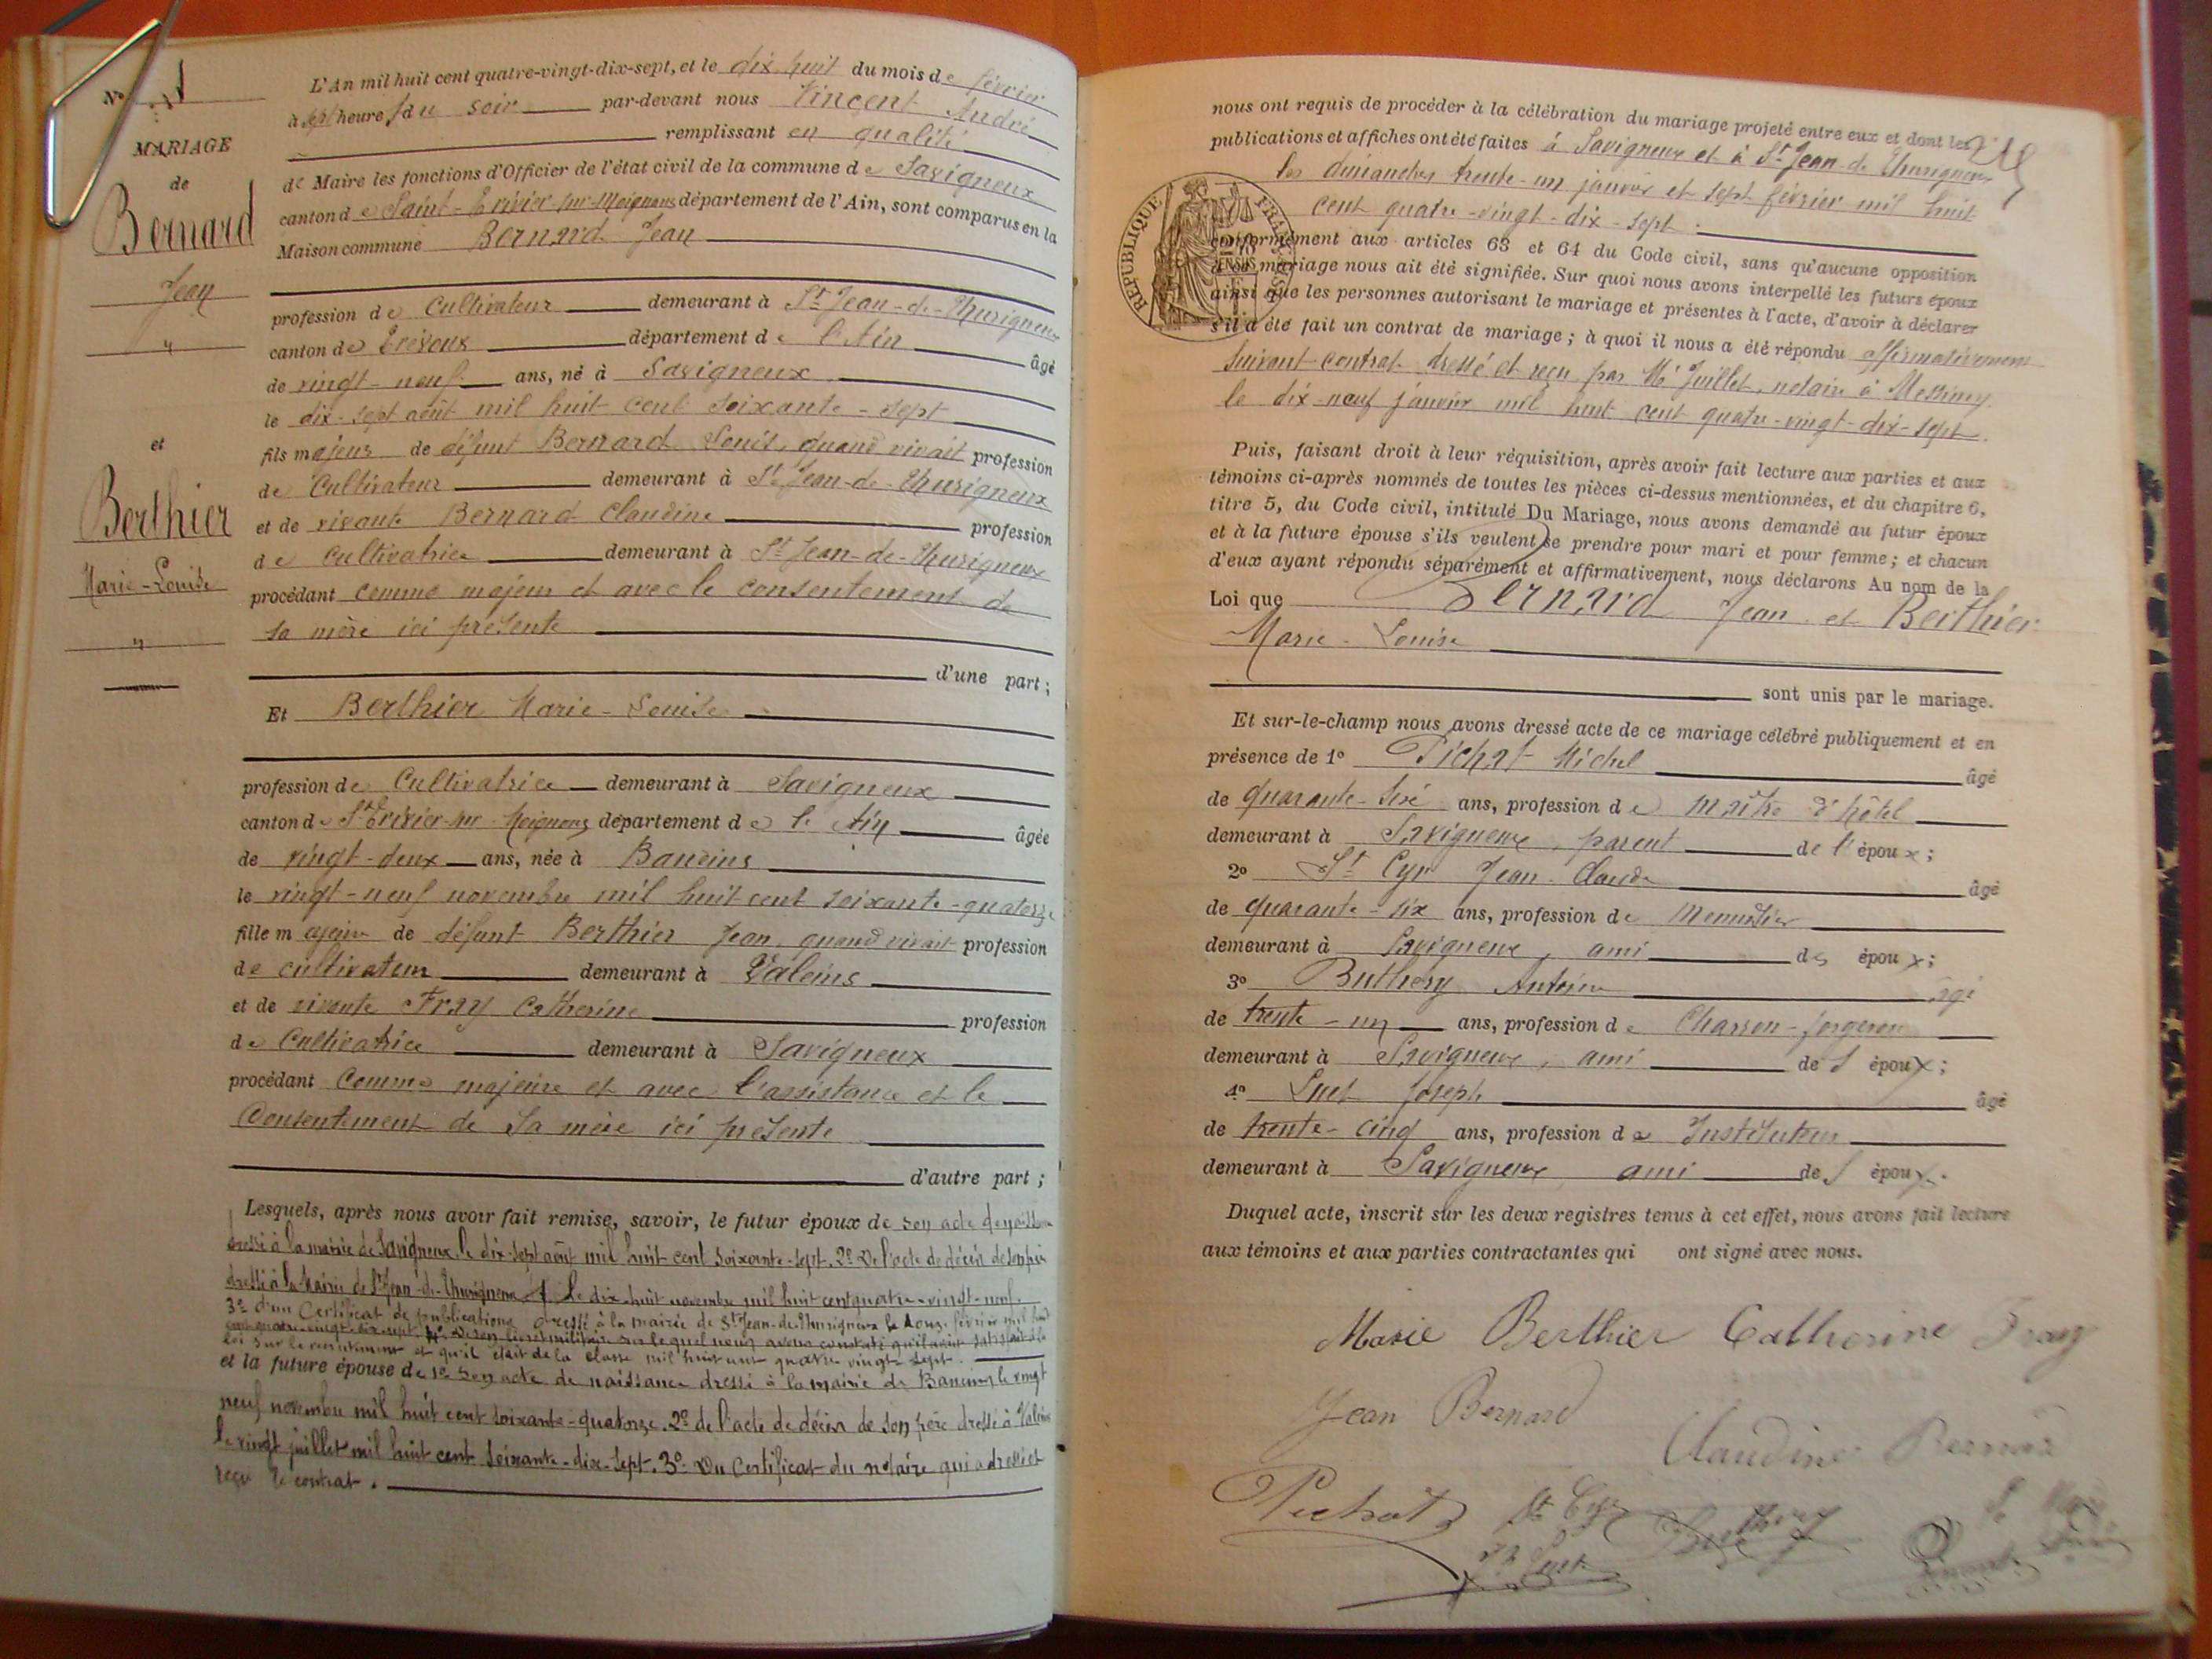 No 1
MARIAGE
de
Bernard
Jean
"
et
Berthier
Marie-Louise
"
L'An mil huit cent quatre-vingt-dix-sept, et le dix huit du mois de février
à sept heures du soir par-devant nous Vincent André
remplissant en qualité
de Maire les fonctions d'Officier de l'état civil de la commune de Savigneux
canton de Saint-Trivier-sur-Moignans département de l'Ain, sont comparus en la
Maison commune Bernard Jean
profession de Cultivateur demeurant à St Jean-de-Thurigneux
canton de Trévoux département de l'Ain âgé
de vingt-neuf ans, né à Savigneux
le dix-sept août mil huit cent soixante-sept
fils majeur de défunt Bernard Louis, quand vivait profession
de Cultivateur demeurant à St Jean-de-Thurigneux
et de vivante Bernard Claudine profession
de cultivatrice demeurant à St Jean-de-Thurigneux
procédant comme majeur et avec le consentement de
sa mère ici présente
d'une part;
Et Berthier Marie-Louise
profession de Cultivatrice demeurant à Savigneux
canton de St Trivier-sur-Moignans département de l'Ain âgée
de vingt-deux ans, née à Baneins
le vingt-neuf novembre mil huit cent soixante-quatorze
fille majeure de défunt Berthier Jean, quand vivait profession
de cultivateur demeurant à Valeins
et de vivante Fray Catherine profession
de Cultivatrice demeurant à Savigneux
procédant comme majeure et avec l'assistance et le
Consentement de sa mère ici présente
d'autre part;
Lesquels, après nous avoir fait remise, savoir, le futur époux de son acte de naissance
dressé à la mairie de Savigneux le dix-sept août mil huit cent soixante-sept. 2º De l'acte de décès de son père
dressé à la Mairie de St Jean-de-Thurigneux le dix-huit novembre mil huit cent quatre-vingt-neuf.
3º d'un Certificat de publications dressé à la mairie de St Jean-de-Thurigneux le douze février mil huit
cent quatre-vingt-dix-sept. 4º De son livret militaire sur lequel nous avons constaté qu'il avait satisfait à la
loi sur le recrutement et qu'il était de la classe mil huit cent quatre vingt sept.
et la future épouse de 1º son acte de naissance dressé à la mairie de Baneins, le vingt
neuf novembre mil huit cent soixante-quatorze. 2º de l'acte de décès de son père dressé à Valeins
le vingt juillet mil huit cent soixante-dix-sept. 3º Du Certificat du notaire qui a dressé et
reçu le contrat.
nous ont requis de procéder à la célébration du mariage projeté entre eux et dont les
publications et affiches ont été faites à Savigneux et à St Jean-de-Thurigneux
les dimanches trente-un janvier et sept février mil huit
cent quatre-vingt-dix-sept.
conformément aux articles 63 et 64 du Code civil, sans qu'aucune opposition
à ce mariage nous ait été signifiée. Sur quoi nous avons interpellé les futurs époux
ainsi que les personnes autorisant le mariage et présentes à l'acte, d'avoir à déclarer
s'il a été fait un contrat de mariage; à quoi il nous a été répondu affirmativement
suivant contrat dressé et reçu par Me Juillet, notaire à Messimy
le dix-neuf janvier mil huit cent quatre-vingt-dix-sept.
REPUBLIQUE FRANÇAISE
Puis, faisant droit à leur réquisition, après avoir fait lecture aux parties et aux
témoins ci-après nommés de toutes les pièces ci-dessus mentionnées, et du chapitre 6,
titre 5, du Code civil, intitulé Du Mariage, nous avons demandé au futur époux
et à la future épouse s'ils veulent se prendre pour mari et pour femme; et chacun
d'eux ayant répondu séparément et affirmativement, nous déclarons Au nom de la
Loi que Bernard Jean et Berthier
Marie-Louise
sont unis par le mariage.
Et sur-le-champ nous avons dressé acte de ce mariage célébré publiquement et en
présence de 1º Pichat Michel âgé
de quarante-six ans, profession de maître d'hôtel
demeurant à Savigneux, parent de l'époux;
2º St Cyr Jean-Claude âgé
de quarante-six ans, profession de Menuisier
demeurant à Savigneux, ami des époux;
3º Buthery Antoine âgé
de trente-un ans, profession de Charron-forgeron
demeurant à Savigneux, ami des époux;
4º Luet Joseph âgé
de trente-cinq ans, profession de Instituteur
demeurant à Savigneux ami des époux.
Duquel acte, inscrit sur les deux registres tenus à cet effet, nous avons fait lecture
aux témoins et aux parties contractantes qui ont signé avec nous.
Marie Berthier Catherine Fray
Jean Bernard
Claudine Bernard
Pichat St Cyr Buthery
Le Maire